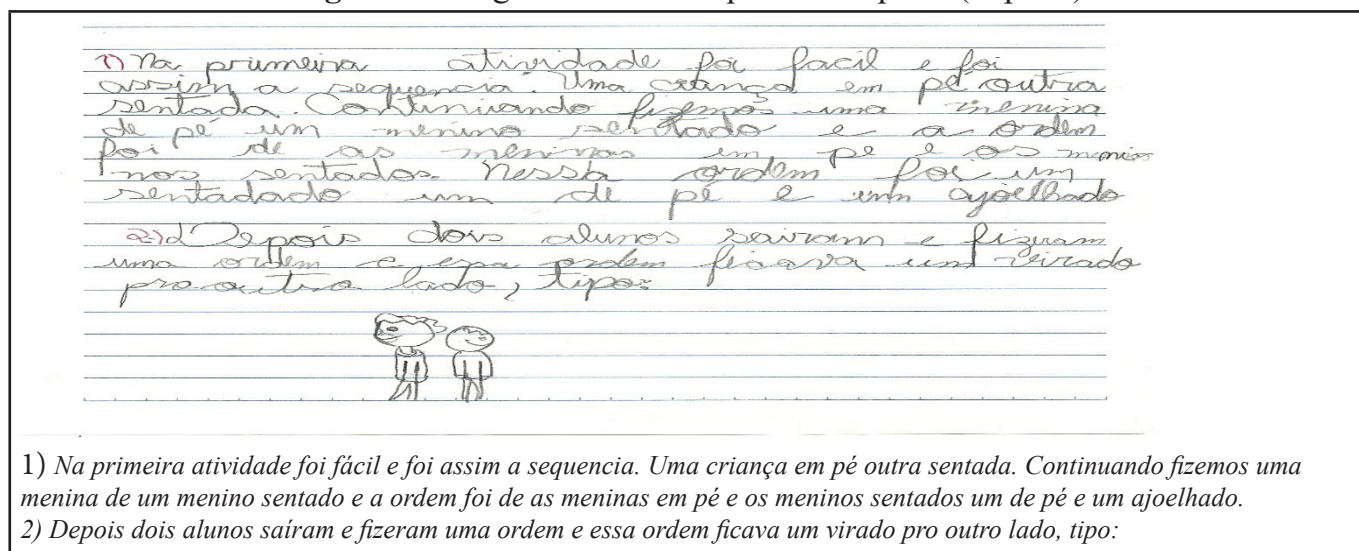 1) Na primeira atividade foi facil e foi
assim a sequencia. Uma criança em pé outra
sentada. Continuando fizemos uma menina
de pé um menino sentado e a ordem
foi de as meninas em pe e os meni
nos sentados. Nessa ordem foi um
sentadado um de pé e um ajoelhado
2) Depois dois alunos sairam e fizeram
uma ordem e essa ordem ficava um virado
pro outro lado, tipo:
1) Na primeira atividade foi fácil e foi assim a sequencia. Uma criança em pé outra sentada. Continuando fizemos uma
menina de um menino sentado e a ordem foi de as meninas em pé e os meninos sentados um de pé e um ajoelhado.
2) Depois dois alunos saíram e fizeram uma ordem e essa ordem ficava um virado pro outro lado, tipo: